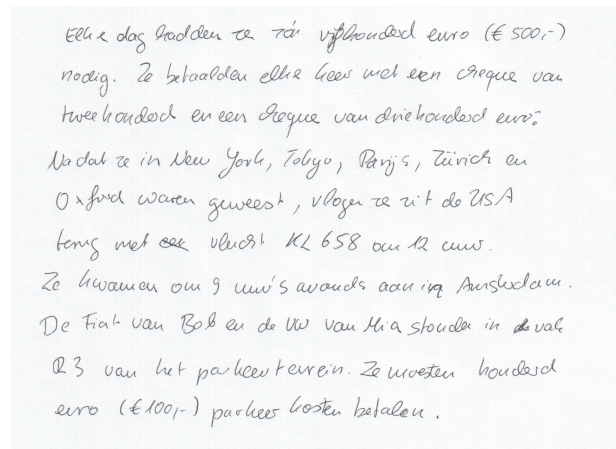 Elke dag hadden ze zo'n vijfhonderd euro (€ 500,-)
nodig. Ze betaalden elke keer met een cheque van
tweehonderd en een cheque van driehonderd euro.
Nadat ze in New York, Tokyo, Parijs, Zürich en
Oxford waren geweest, vlogen ze uit de USA
terug met vlucht KL 658 om 12 uur.
Ze kwamen om 9 uur 's avonds aan in Amsterdam.
De Fiat van Bob en de VW van Mia stonden in vak
R3 van het parkeerterrein. Ze moesten honderd
euro (€100,-) parkeerkosten betalen.